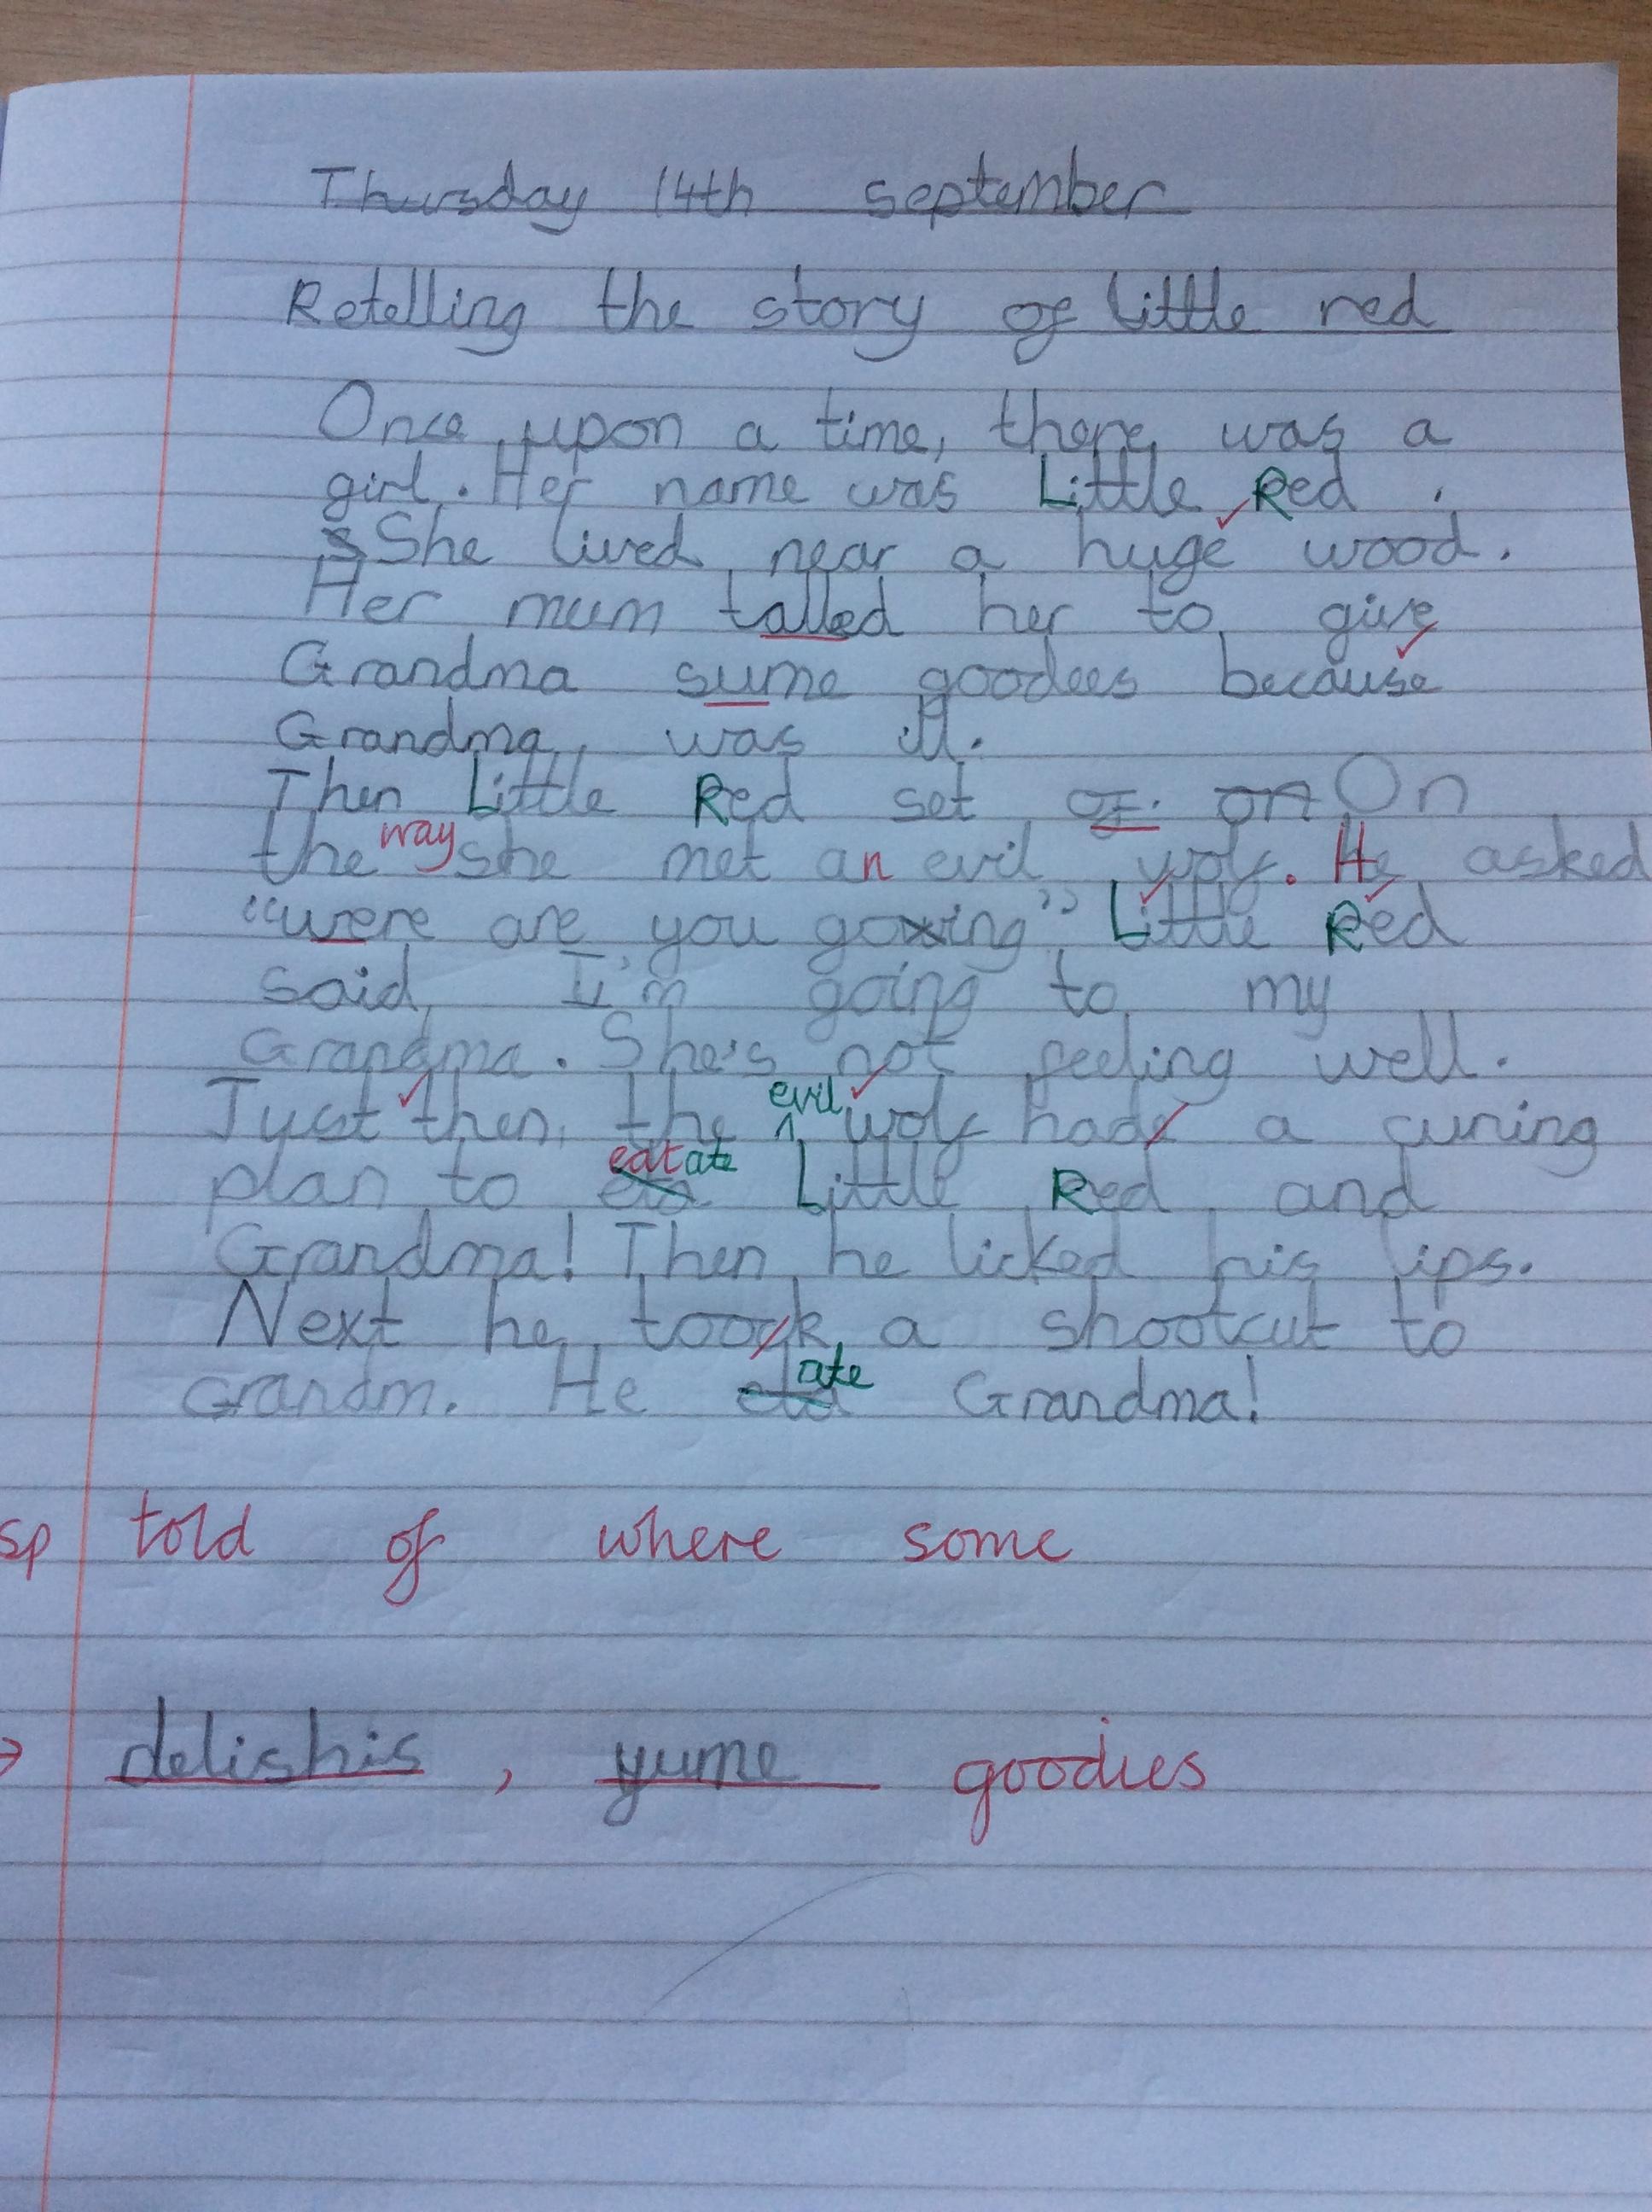 Thursday 14th september
Retelling the story of little red
Once upon a time, there was a
girl. Her name was Little Red .
She lived near a huge wood.
Her mum talled her to give
Grandma sume goodees because
Grandma was ill.
Then Little Red set of. on On
the way she met an evil wolf. He asked
“were are you going” Little Red
said I'm going to my
Grandma. She's not feeling well.
Tyust then, the evil wolf hade a cuning
plan to eta eat ate Little Red and
Grandma! Then he licked his lips.
Next he toock a shootcut to
Grandm. He eta ate Grandma!
sp told of where some
→ delishis , yume goodies